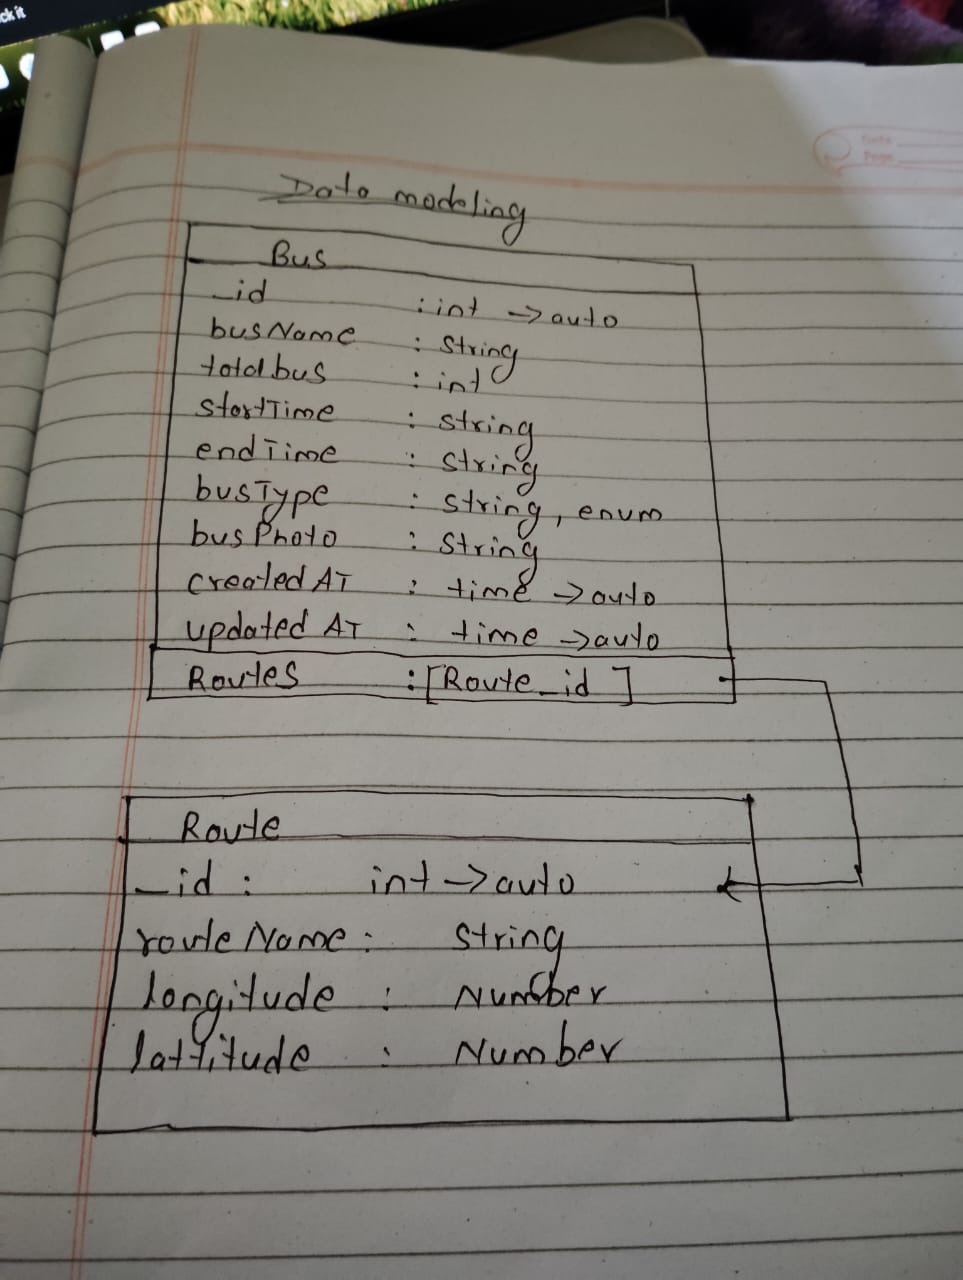 ck it
Date
Page
Data modeling
Bus
_id : int -> auto
busName : string
totalbus : int
startTime : string
endTime : string
busType : string, enum
busPhoto : string
created AT : time -> auto
updated AT : time -> auto
Routes : [Route_id]
Route
_id : int -> auto
routeName : string
longitude : Number
lattitude : Number